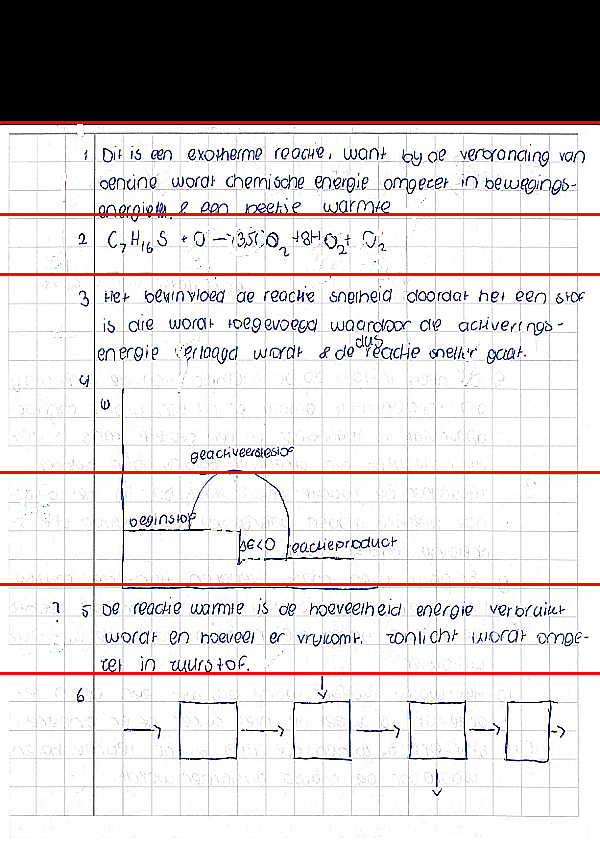 1 Dit is een exotherme reactie, want bij de verbranding van
benzine wordt chemische energie omgezet in bewegings-
energie & een beetje warmte
2 C7H16S + O → 13,5CO2 + 8HO2 +
3 Het beïnvloed de reactie snelheid doordat het een stof
is die wordt toegevoegd waardoor de activerings-
energie verlaagd wordt & de dus reactie sneller gaat.
4
geactiveerdestof
beginstof
ΔE<0 reactieproduct
? 5 De reactie warmte is de hoeveelheid energie verbruikt
wordt en hoeveel er vrijkomt. zonlicht wordt omge-
zet in zuurstof.
6